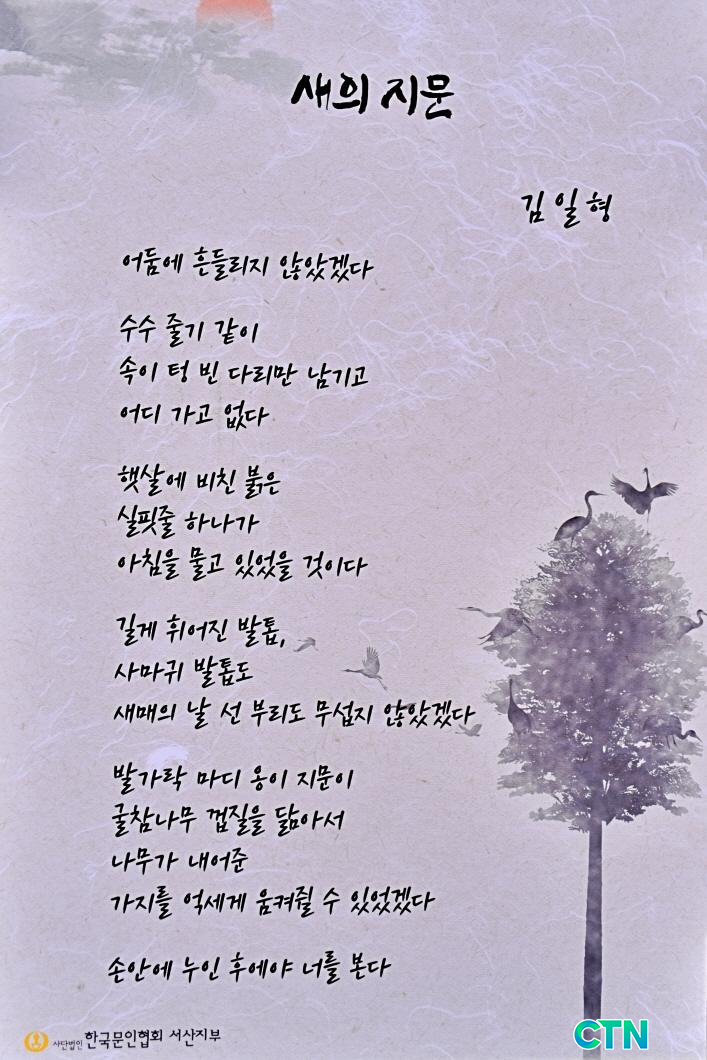 새의 지문
김일형
어둠에 흔들리지 않았겠다
수수 줄기 같이
속이 텅 빈 다리만 남기고
어디 가고 없다
햇살에 비친 붉은
실핏줄 하나가
아침을 물고 있었을 것이다
길게 휘어진 발톱,
사마귀 발톱도
새매의 날 선 부리도 무섭지 않았겠다
발가락 마디 옹이 지문이
굴참나무 껍질을 닮아서
나무가 내어준
가지를 억세게 움켜쥘 수 있었겠다
손안에 누인 후에야 너를 본다
사단법인 한국문인협회 서산지부
CTN